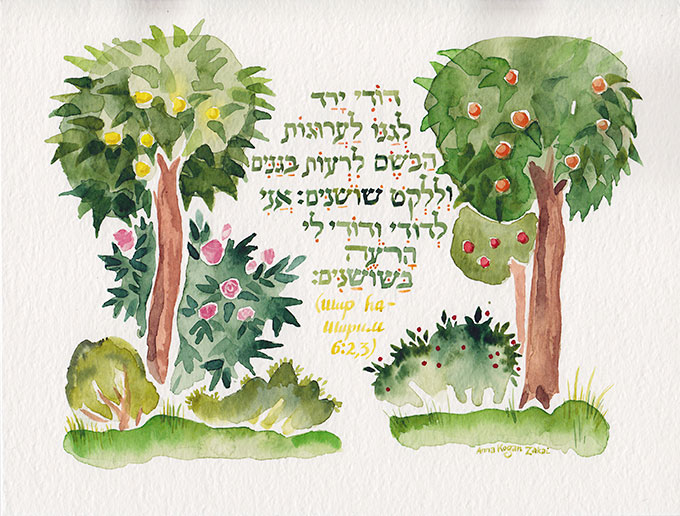 דּוֹדִי יָרַד
לְגַנּוֹ לַעֲרוּגוֹת
הַבֹּשֶׂם לִרְעוֹת בַּגַּנִּים
וְלִלְקֹט שׁוֹשַׁנִּים: אֲנִי
לְדוֹדִי וְדוֹדִי לִי
הָרֹעֶה
בַּשּׁוֹשַׁנִּים:
(шир ha-
ширим
6:2,3)
Anna Kogan Zakai